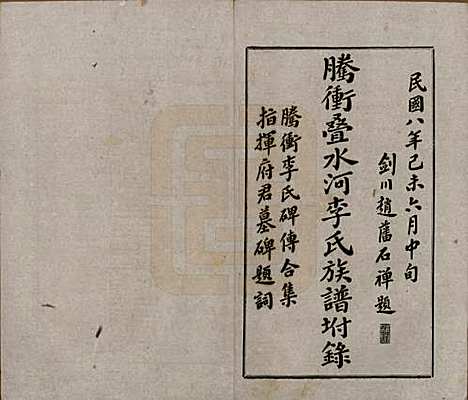 民國八年己未六月中旬
劍川趙藩石禪題
騰衝疊水河李氏族譜坿錄
騰衝李氏碑傳合集
指揮府君墓碑題詞